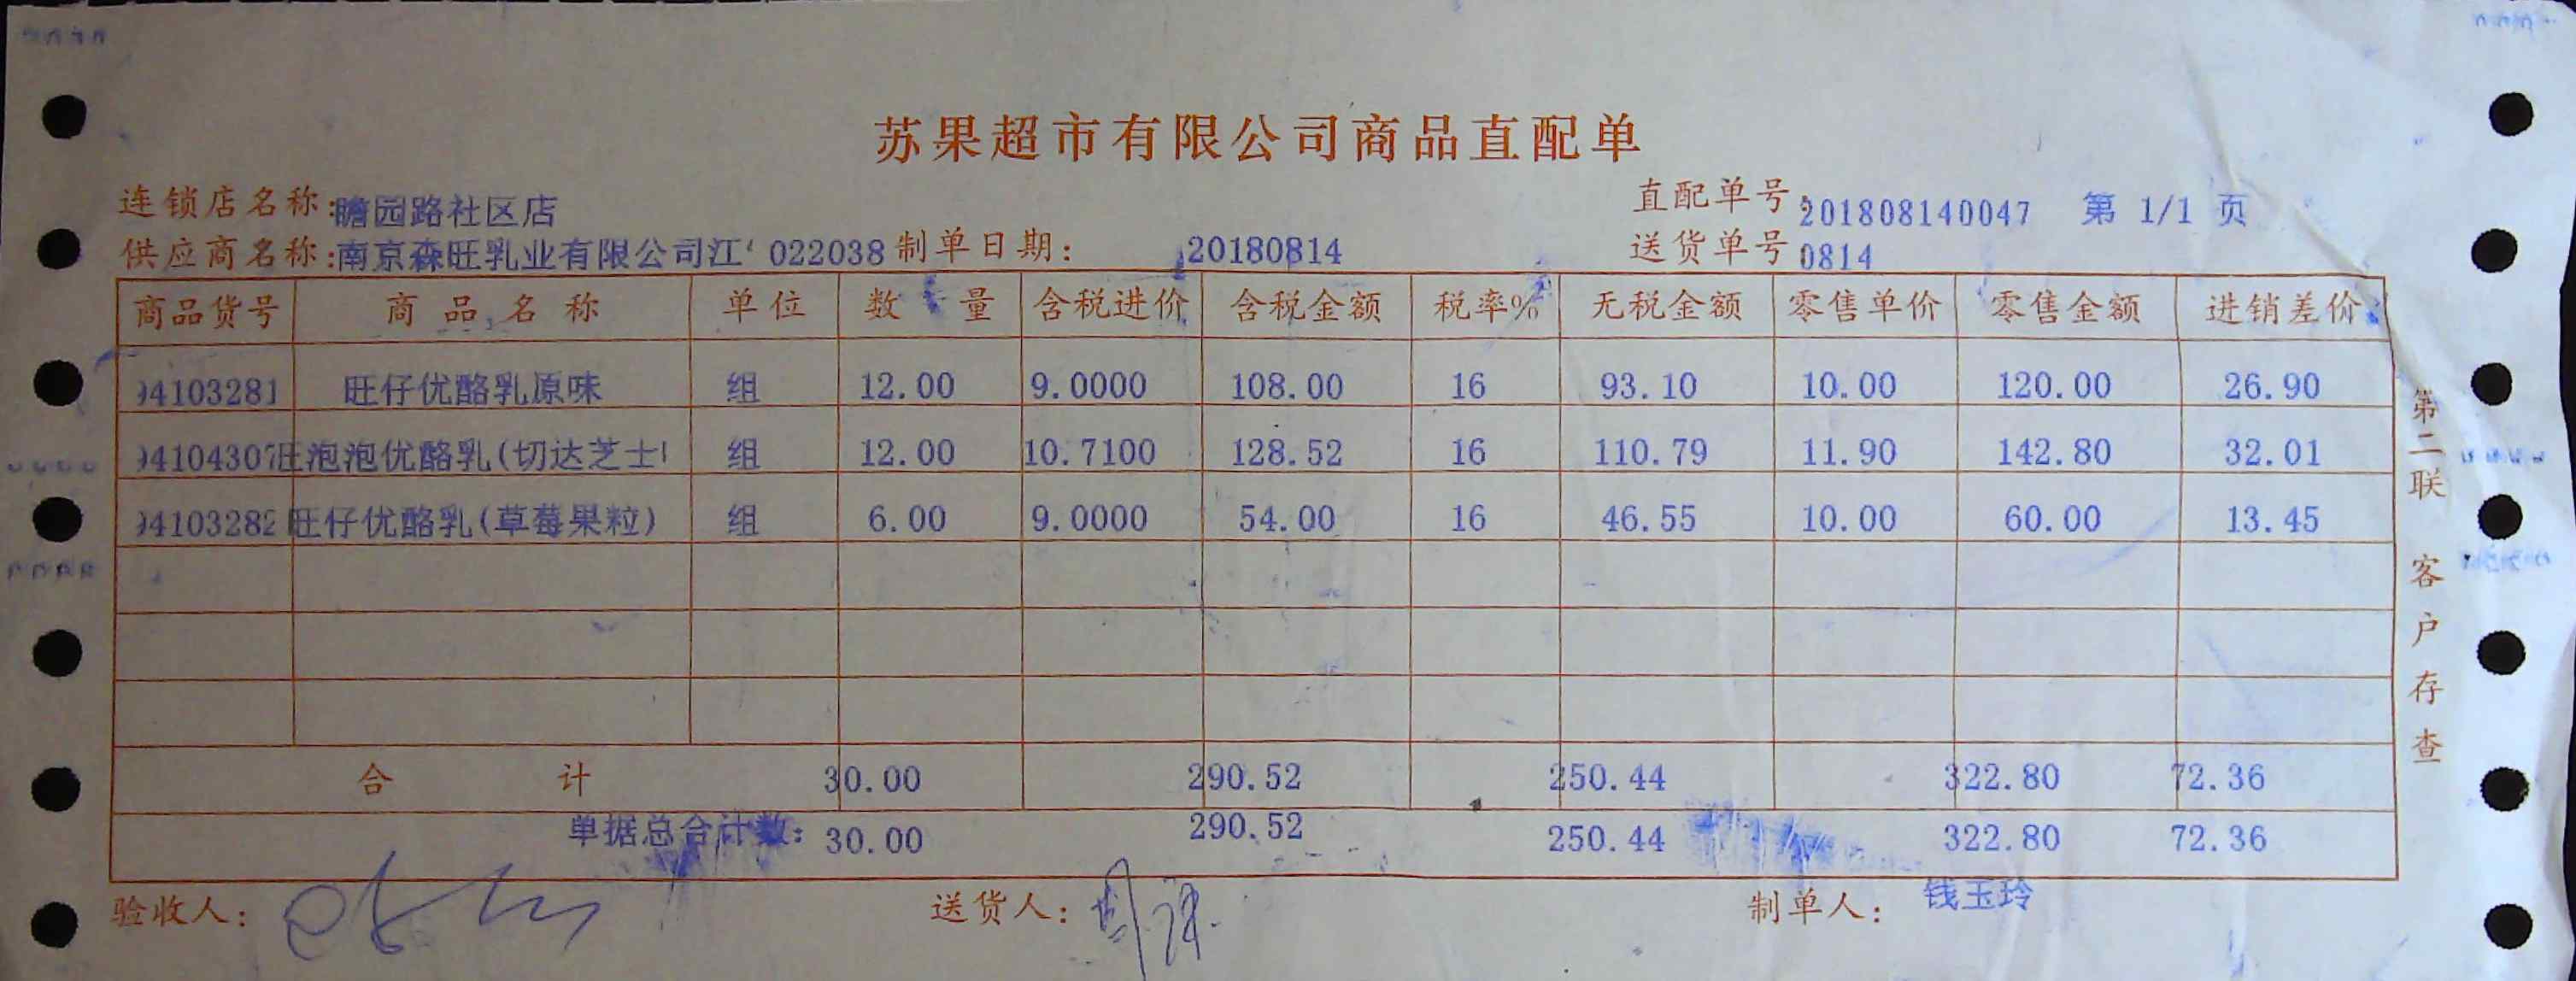 苏果超市有限公司商品直配单
连锁店名称:瞻园路社区店 直配单号:201808140047 第 1/1 页
供应商名称:南京森旺乳业有限公司江 022038 制单日期: 20180814 送货单号 0814
商品货号 商品名称 单位 数量 含税进价 含税金额 税率% 无税金额 零售单价 零售金额 进销差价
94103281 旺仔优酪乳原味 组 12.00 9.0000 108.00 16 93.10 10.00 120.00 26.90
94104307 旺泡泡优酪乳(切达芝士 组 12.00 10.7100 128.52 16 110.79 11.90 142.80 32.01
94103282 旺仔优酪乳(草莓果粒) 组 6.00 9.0000 54.00 16 46.55 10.00 60.00 13.45
合计 30.00 290.52 250.44 322.80 72.36
单据总合计数: 30.00 290.52 250.44 322.80 72.36
验收人: 送货人: 制单人: 钱玉玲
第二联 客户存查